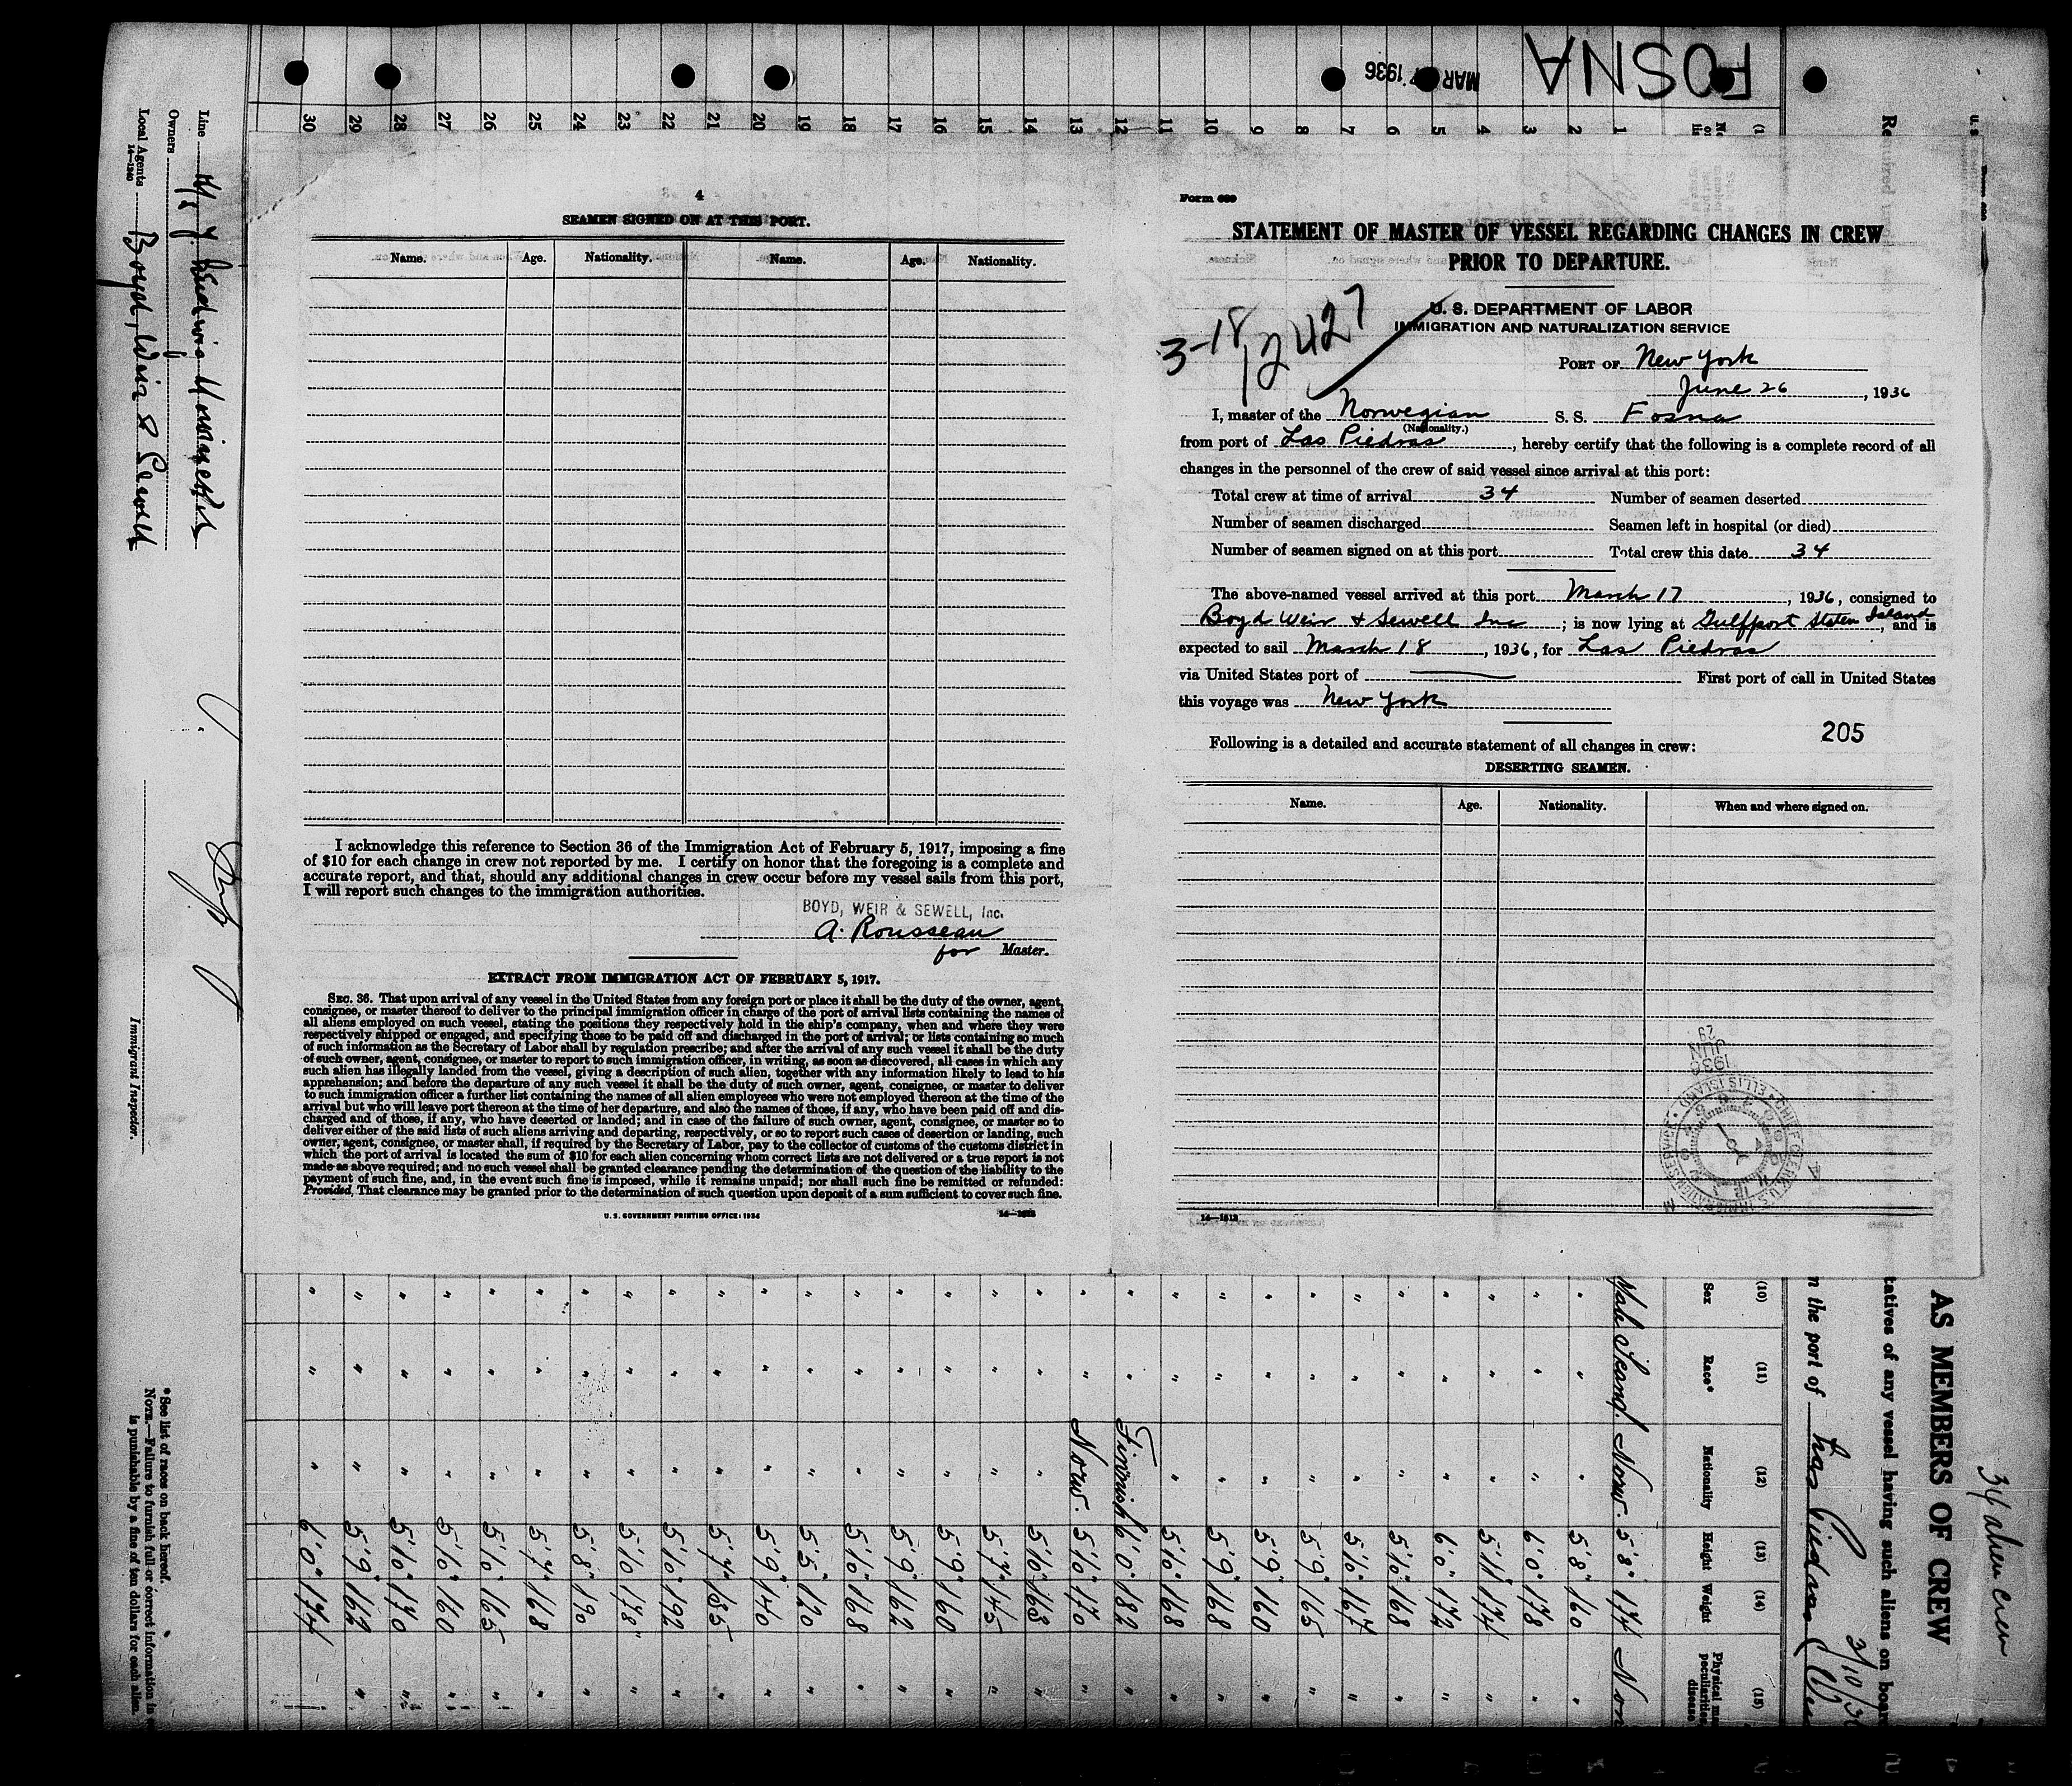 FOSNA
MAR 17 1936
30 29 28 27 26 25 24 23 22 21 20 19 18 17 16 15 14 13 12 11 10 9 8 7 6 5 4 3 2 1
4
SEAMEN SIGNED ON AT THIS PORT.
Name. Age. Nationality. Name. Age. Nationality.
I acknowledge this reference to Section 36 of the Immigration Act of February 5, 1917, imposing a fine
of $10 for each change in crew not reported by me. I certify on honor that the foregoing is a complete and
accurate report, and that, should any additional changes in crew occur before my vessel sails from this port,
I will report such changes to the immigration authorities.
BOYD, WEIR & SEWELL, Inc.
A. Rousseau
for Master.
EXTRACT FROM IMMIGRATION ACT OF FEBRUARY 5, 1917.
SEC. 36. That upon arrival of any vessel in the United States from any foreign port or place it shall be the duty of the owner, agent,
consignee, or master thereof to deliver to the principal immigration officer in charge of the port of arrival lists containing the names of
all aliens employed on such vessel, stating the positions they respectively hold in the ship's company, when and where they were
respectively shipped or engaged, and specifying those to be paid off and discharged in the port of arrival; or lists containing so much
of such information as the Secretary of Labor shall by regulation prescribe; and after the arrival of any such vessel it shall be the duty
of such owner, agent, consignee, or master to report to such immigration officer, in writing, as soon as discovered, all cases in which any
such alien has illegally landed from the vessel, giving a description of such alien, together with any information likely to lead to his
apprehension; and before the departure of any such vessel it shall be the duty of such owner, agent, consignee, or master to deliver
to such immigration officer a further list containing the names of all alien employees who were not employed thereon at the time of the
arrival but who will leave port thereon at the time of her departure, and also the names of those, if any, who have been paid off and dis-
charged and of those, if any, who have deserted or landed; and in case of the failure of such owner, agent, consignee, or master so to
deliver either of the said lists of such aliens arriving and departing, respectively, or so to report such cases of desertion or landing, such
owner, agent, consignee, or master shall, if required by the Secretary of Labor, pay to the collector of customs of the customs district in
which the port of arrival is located the sum of $10 for each alien concerning whom correct lists are not delivered or a true report is not
made as above required; and no such vessel shall be granted clearance pending the determination of the question of the liability to the
payment of such fine, and, in the event such fine is imposed, while it remains unpaid; nor shall such fine be remitted or refunded:
Provided, That clearance may be granted prior to the determination of such question upon deposit of a sum sufficient to cover such fine.
U. S. GOVERNMENT PRINTING OFFICE: 1934
Form 689
STATEMENT OF MASTER OF VESSEL REGARDING CHANGES IN CREW
PRIOR TO DEPARTURE.
U. S. DEPARTMENT OF LABOR
IMMIGRATION AND NATURALIZATION SERVICE
3-18 12427
PORT OF New York
June 26, 1936
I, master of the Norwegian S. S. Fosna
(Nationality.)
from port of Las Piedras, hereby certify that the following is a complete record of all
changes in the personnel of the crew of said vessel since arrival at this port:
Total crew at time of arrival 34 Number of seamen deserted
Number of seamen discharged Seamen left in hospital (or died)
Number of seamen signed on at this port Total crew this date 34
The above-named vessel arrived at this port March 17, 1936, consigned to
Boyd Weir & Sewell Inc; is now lying at Gulfport Staten Island, and is
expected to sail March 18, 1936, for Las Piedras
via United States port of First port of call in United States
this voyage was New York
205
Following is a detailed and accurate statement of all changes in crew:
DESERTING SEAMEN.
Name. Age. Nationality. When and where signed on.
1936 JUN 29
Line
Owners
Local Agents Boyd, Weir & Sewell
14—1240
Immigrant Inspector.
* See list of races on back hereof.
NOTE.—Failure to furnish full or correct information is
is punishable by a fine of ten dollars for each alien.
34 alien crew
AS MEMBERS OF CREW
tatives of any vessel having such aliens on board
n the port of Las Piedras
3/10/36
(10) (11) (12) (13) (14) (15)
Sex Race* Nationality Height Weight
Male Scand. Norw. 5'8" 174
" " " 5'8" 160
" " " 6'0" 178
" " " 5'11" 174
" " " 6'0" 172
" " " 5'10" 168
" " " 5'10" 167
" " " 5'9" 165
" " " 5'9" 160
" " " 5'9" 168
" " " 5'10" 168
" " Finnish 6'0" 182
" " Norw. 5'10" 170
" " " 5'10" 163
" " " 5'7" 145
" " " 5'9" 160
" " " 5'9" 162
" " " 5'10" 168
" " " 5'5" 120
" " " 5'9" 140
" " " 5'7" 185
" " " 5'10" 192
" " " 5'10" 178
" " " 5'8" 190
" " " 5'7" 168
" " " 5'10" 165
" " " 5'10" 160
" " " 5'10" 170
" " " 5'9" 162
" " " 6'0" 174